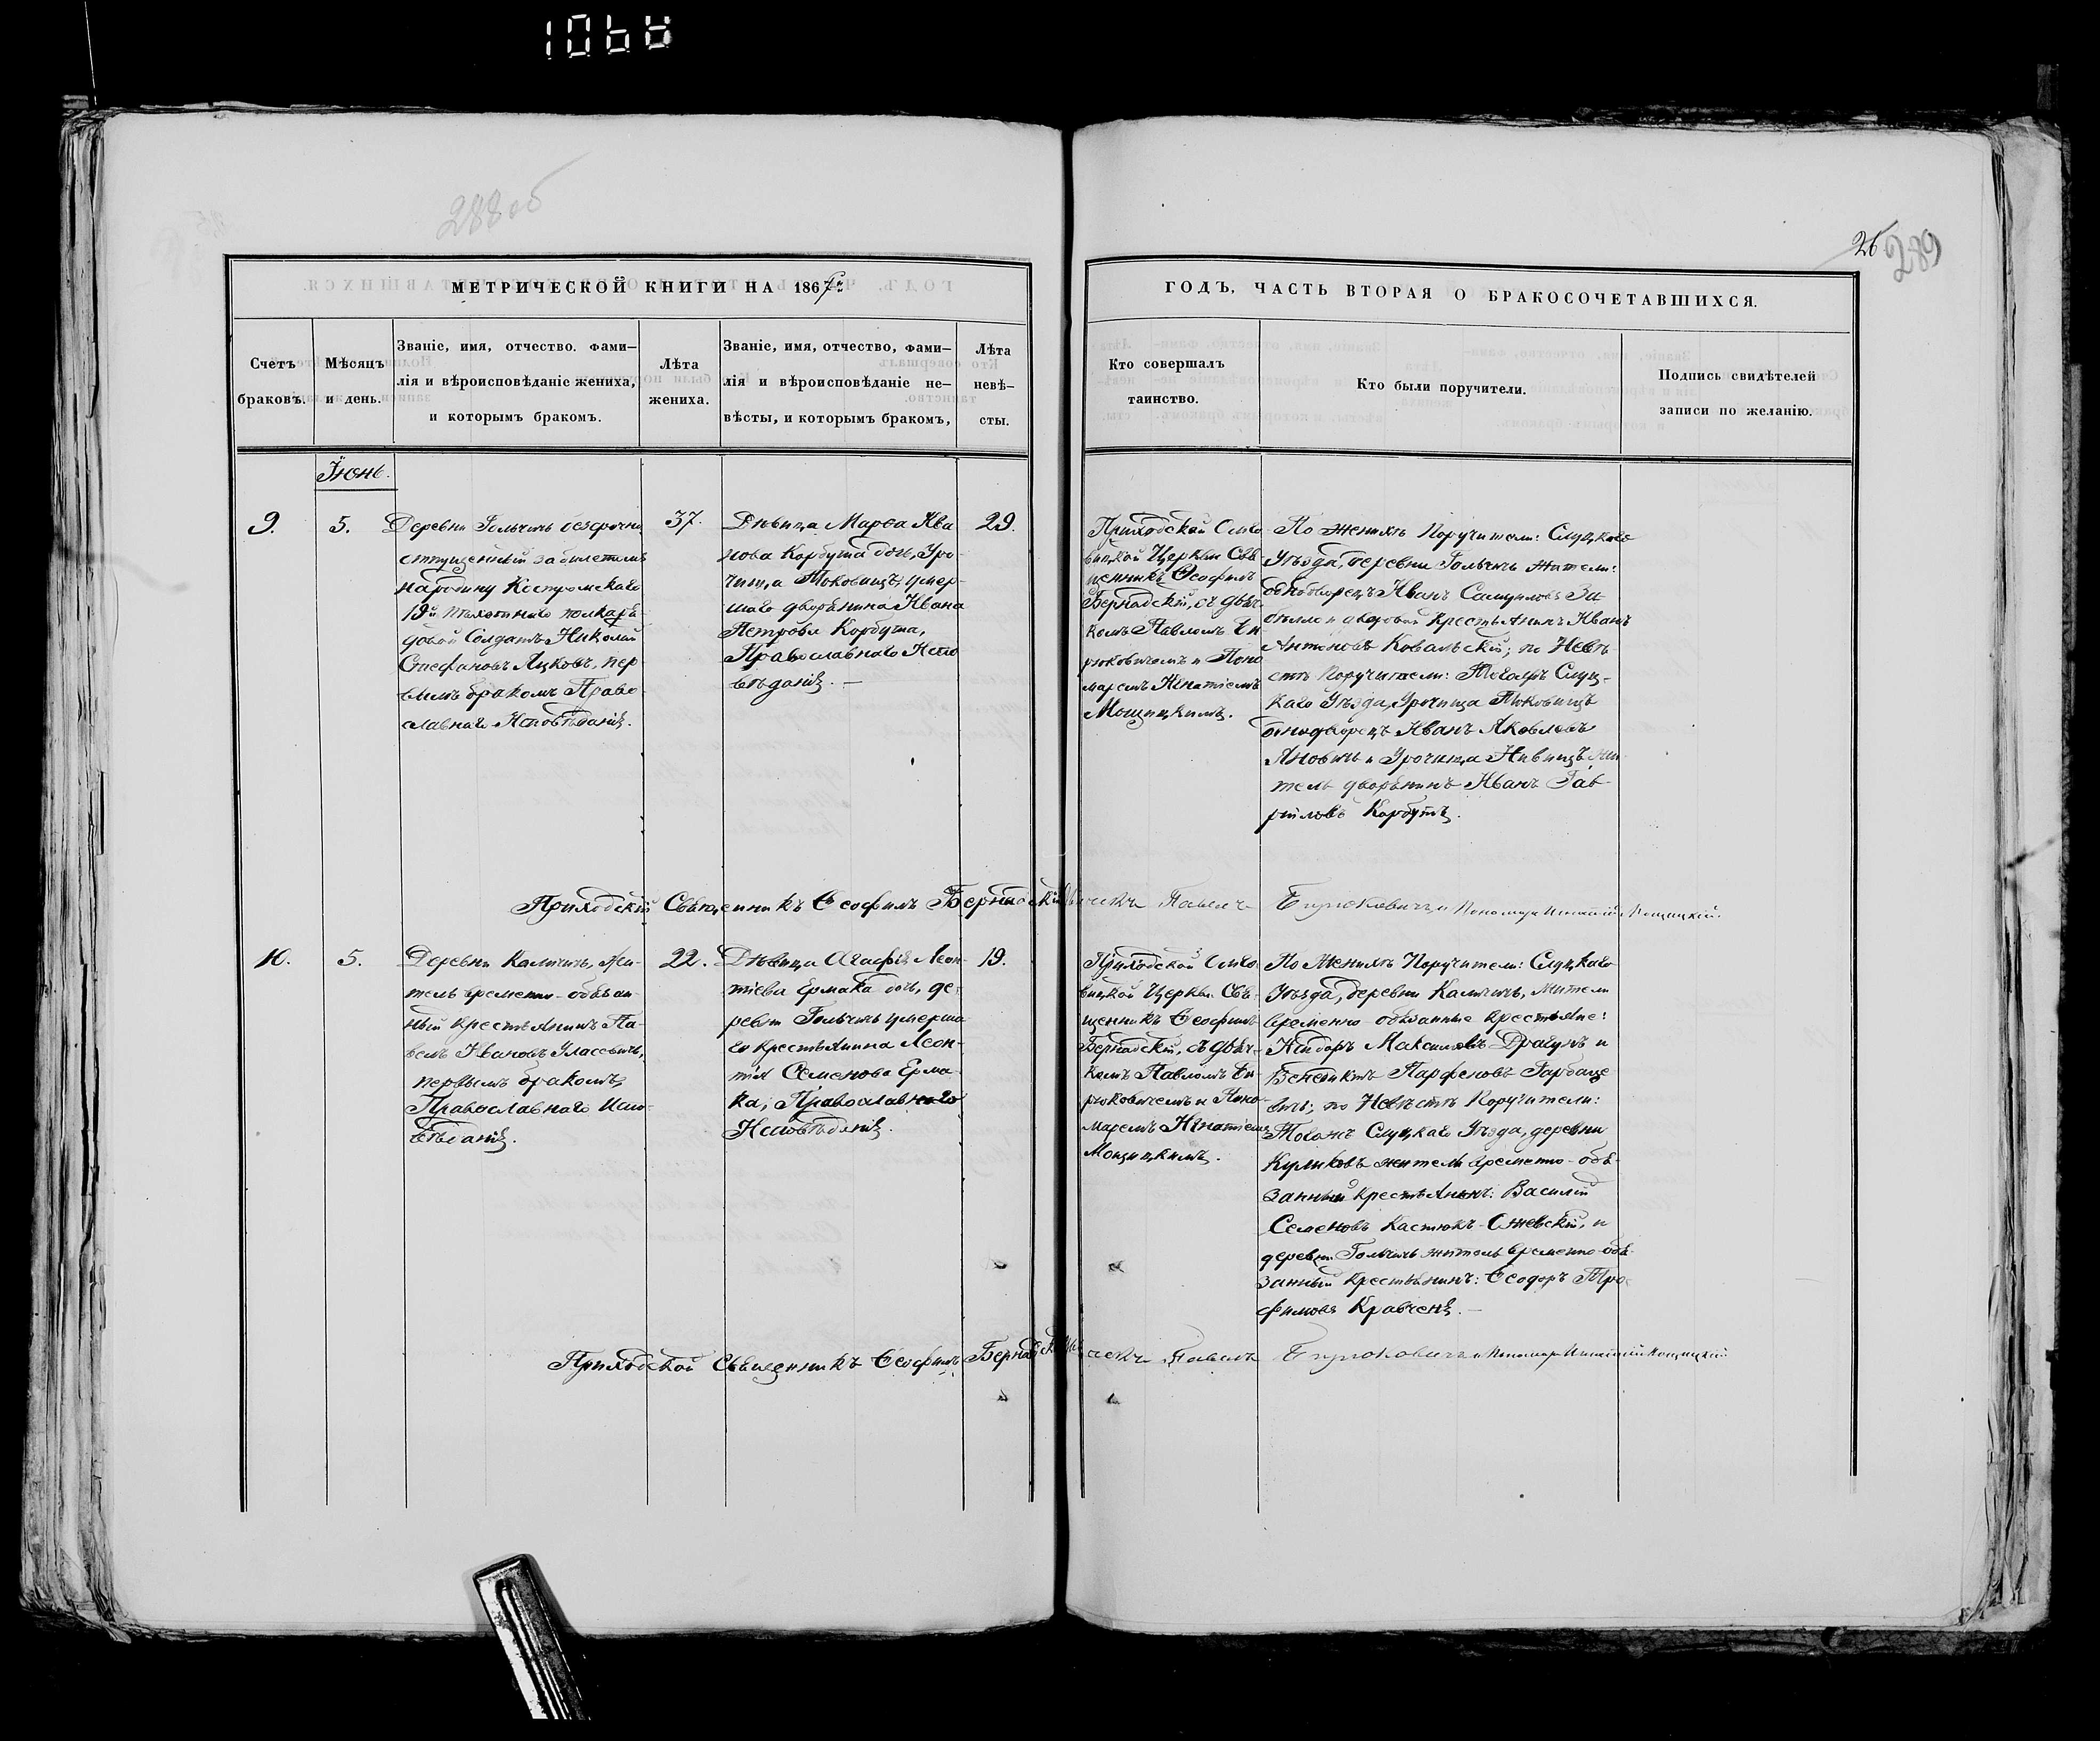 288 об
26 289
МЕТРИЧЕСКОЙ КНИГИ НА 1867й
Счетъ
браковъ.
Мѣсяцъ
и день.
Званіе, имя, отчество. фами-
лія и вѣроисповѣданіе жениха,
и которымъ бракомъ.
Лѣта
жениха.
Званіе, имя, отчество, фами-
лія и вѣроисповѣданіе не-
вѣсты, и которымъ бракомъ,
Лѣта
невѣ-
сты.
ГОДЪ, ЧАСТЬ ВТОРАЯ О БРАКОСОЧЕТАВШИХСЯ.
Кто совершалъ
таинство.
Кто были поручители.
Подпись свидѣтелей
записи по желанію.
Іюнь.
9.
5.
Деревни Гольчичь безсрочно
отпущенный за билетомъ
на родину Костромскаго
19й пѣхотнаго полка ря-
довой Солдатъ Николай
Стефановъ Яцковъ, пер-
вымъ бракомъ Право-
славнаго Исповѣданія.
37.
Дѣвица Марѳа Ива
нова Корбута дочь, Уро-
чища Моковищъ, умер-
шаго дворянина Ивана
Петрова Корбута,
Православнаго Испо
вѣданія. —
29.
Приходской
вицкой Церкви Свя-
щенникъ Ѳеофилъ
Бернадскій, съ дьяч-
комъ Павломъ Би-
рюковичемъ и Поно
маремъ Игнатіемъ
Мощицкимъ.
По Женихѣ Поручители: Слуцкаго
Уѣзда, деревни Гольчичь жители:
однодворецъ Иванъ Самуиловъ За-
и дворовой Крестьянинъ Иванъ
Антоновъ Ковальскій; по Невѣ-
стѣ Поручители: Тогожъ Слуц-
каго Уѣзда, Урочища Моковищъ
однодворецъ Иванъ Яковлевъ
Яновичь и Урочища Нивищъ жи-
тель дворянинъ Иванъ Гав-
риловъ Корбутъ.
Приходскій Священникъ Ѳеофилъ Бернадскій Дьячекъ Павелъ Бирюковичъ и Пономарь Игнатій Мощицкій.
10.
5.
Деревни Калчичь, жи-
тель временно-обязан-
ный крестьянинъ Па-
велъ Ивановъ Уласевичь,
первымъ бракомъ,
Православнаго Испо-
вѣданія.
22.
Дѣвица Агафія Леон-
тіева Ермака дочь, де-
ревни Гольчичь умерша
го крестьянина Леон-
тія Семенова Ерма-
ка, Православнаго
Исповѣданія.
19.
Приходской
вицкой Церкви Свя-
щенникъ Ѳеофилъ
Бернадскій, съ дьяч-
комъ Павломъ Би-
рюковичемъ и Поно-
маремъ Игнатіемъ
Мощицкимъ.
По Женихѣ Поручители: Слуцкаго
Уѣзда, деревни Калчичь, жители
временно-обязанные крестьяне:
Исидоръ Максимовъ Драгунъ и
Венедиктъ Парфеновъ Гарбаце
вичь; по Невѣстѣ Поручители:
Тогожъ Слуцкаго Уѣзда, деревни
Куликовъ житель временно-обя-
занный Крестьянинъ: Василій
Семеновъ Кастюкъ-Снежскій, и
деревни Гольчичь житель временно-обя-
занный Крестьянинъ: Ѳеодоръ Тро-
фимовъ Кравченя. —
Приходской Священникъ Ѳеофилъ Бернадскій Дьячекъ Павелъ Бирюковичъ и Пономарь Игнатій Мощицкій